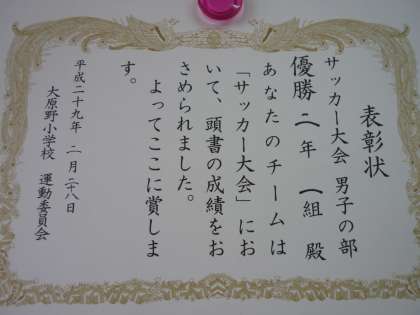 表彰状
サッカー大会 男子の部
優勝 二 年 一 組 殿
あなたのチームは
「サッカー大会」にお
いて、頭書の成績をお
さめられました。
よってここに賞しま
す。
平成二十九年 二 月 二十八 日
大原野小学校 運動委員会